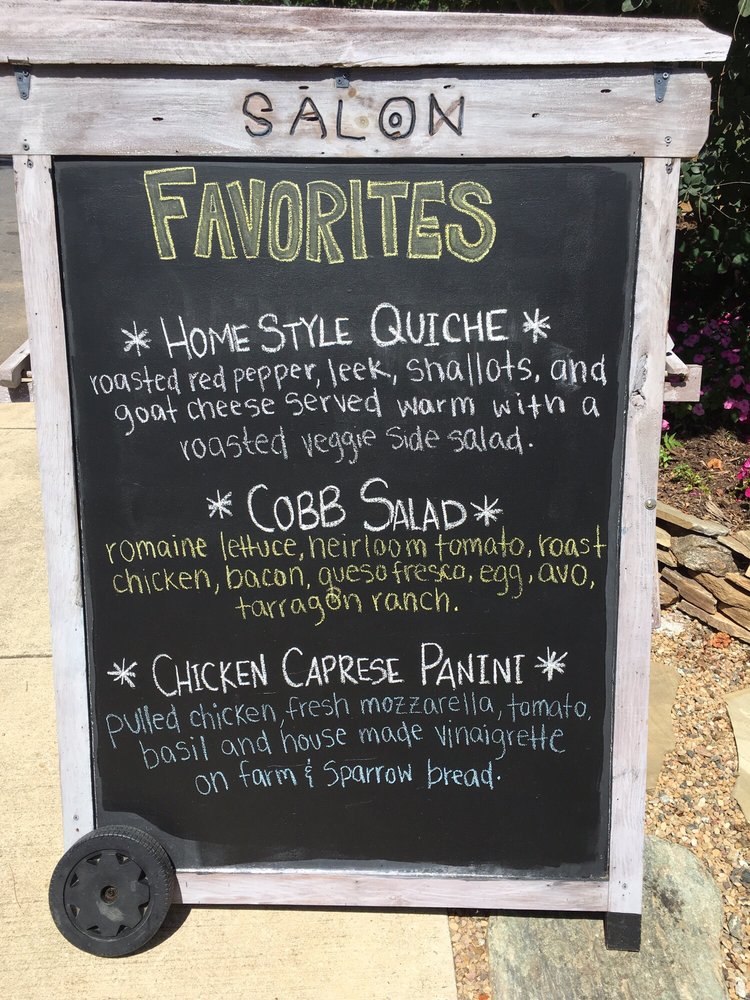 SALON
FAVORITES
* HOME STYLE QUICHE *
roasted red pepper, leek, shallots, and
goat cheese served warm with a
roasted veggie side salad.
* COBB SALAD *
romaine lettuce, heirloom tomato, roast
chicken, bacon, queso fresco, egg, avo,
tarragon ranch.
* CHICKEN CAPRESE PANINI *
pulled chicken, fresh mozzarella, tomato,
basil and house made vinaigrette
on farm & Sparrow bread.